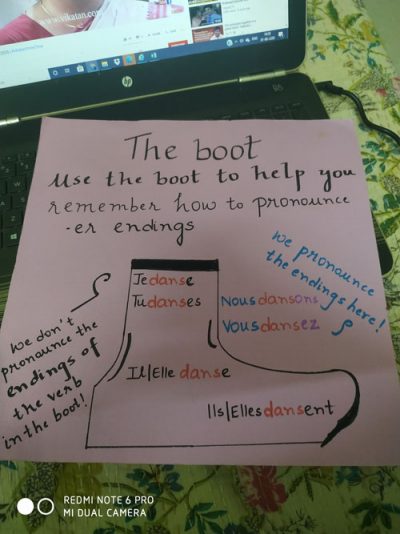 www.vikatan.com
hp
The boot
Use the boot to help you
remember how to pronounce
-er endings
we don't
pronounce the
endings of
the verb
in the boot!
Je danse
Tu danses
Il/Elle danse
Ils/Elles dansent
Nous dansons
Vous dansez
we pronounce
the endings here!
REDMI NOTE 6 PRO
MI DUAL CAMERA